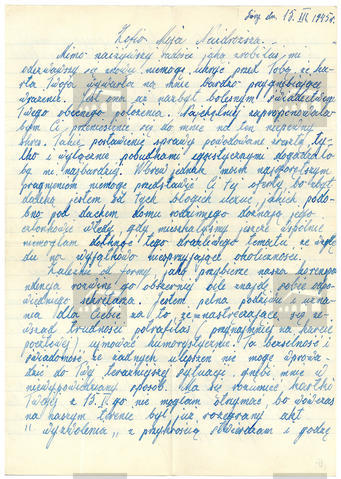 dn. 15. III. 1945r.
Zosiu Moja Najdroższa.
Mimo najżywszej radości jaką zrobiłaś mi
odezwawszy się znowu niemogę ukryć przed Tobą, że
Twoja wywarła na mnie bardzo przygnębiające
wrażenie. Jest ona aż nazbyt bolesnym świadectwem
Twego obecnego położenia. Najchętniej zaproponowała-
bym Ci przeniesienie się do mnie na ten niepewny
okres. Takie postawienie sprawy powodowane zresztą tyl-
ko i wyłącznie pobudkami egoistycznymi dogadzało
by mi najbardziej. Wbrew jednak moim najgorętszym
pragnieniom niemogę przedstawić Ci tej oferty, bo zbyt
daleką jestem od tych błogich uczuć, jakich podo-
bno pod dachem domu rodzinnego doznają jego
członkowie. Wtedy, gdy mieszkałyśmy jeszcze wspólnie
niemogłam dotknąć tego drażliwego tematu, ze wzglę-
du na wyjątkowo niesprzyjające okoliczności.
Zależnie od formy, jaką przybierze nasza korespon-
dencja
wiedniego sekretarza. Jestem pełna podziwu i uzna-
nia dla Ciebie za to, że nastręczające się
trudności potrafiłaś (przynajmniej na karcie
pocztowej), ujmować humorystycznie. Ta bezsilność i
świadomość, że żadnych ulepszeń nie mogę wprowa-
dzić do Twej teraźniejszej sytuacji, gnębi mnie w
niewypowiedziany sposób. Ma się rozumieć kartki
Twojej z 15. I. go nie mogłam otrzymać, bo wówczas
na naszym terenie był już rozegrany akt
"wyzwolenia" z przykrością stwierdzam i godzę